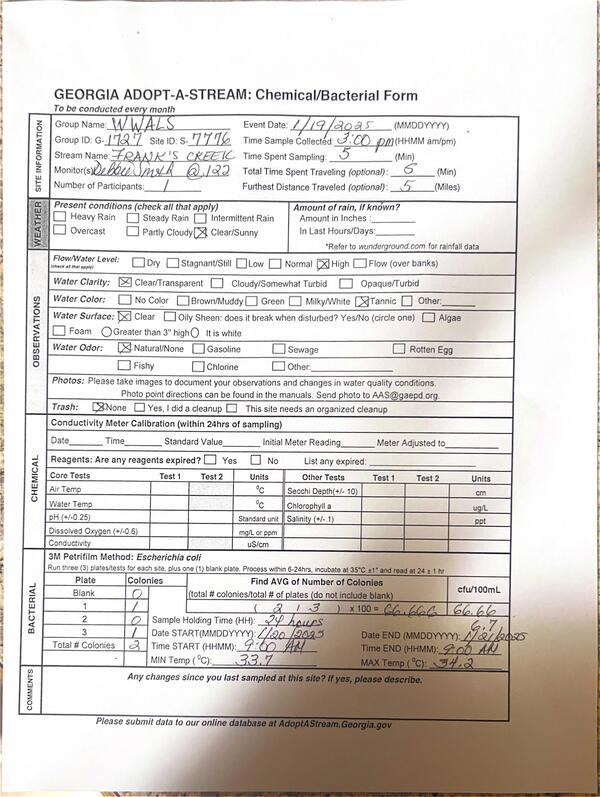 GEORGIA ADOPT-A-STREAM: Chemical/Bacterial Form
To be conducted every month
SITE INFORMATION
Group Name: WWALS Event Date: 1/19/2025 (MMDDYYYY)
Group ID: G-1727 Site ID: S-7776 Time Sample Collected: 3:00 pm (HHMM am/pm)
Stream Name: FRANK'S CREEK Time Spent Sampling: 5 (Min)
Monitor(s) Debbie Smith @ 122 Total Time Spent Traveling (optional): 6 (Min)
Number of Participants: 1 Furthest Distance Traveled (optional): 5 (Miles)
WEATHER
Present conditions (check all that apply) Amount of rain, if known?
Heavy Rain Steady Rain Intermittent Rain Amount in Inches :
Overcast Partly Cloudy Clear/Sunny In Last Hours/Days:
*Refer to wunderground.com for rainfall data
OBSERVATIONS
Flow/Water Level: Dry Stagnant/Still Low Normal High Flow (over banks)
(check all that apply)
Water Clarity: Clear/Transparent Cloudy/Somewhat Turbid Opaque/Turbid
Water Color: No Color Brown/Muddy Green Milky/White Tannic Other:
Water Surface: Clear Oily Sheen: does it break when disturbed? Yes/No (circle one) Algae
Foam Greater than 3" high It is white
Water Odor: Natural/None Gasoline Sewage Rotten Egg
Fishy Chlorine Other:
Photos: Please take images to document your observations and changes in water quality conditions.
Photo point directions can be found in the manuals. Send photo to AAS@gaepd.org.
Trash: None Yes, I did a cleanup This site needs an organized cleanup
CHEMICAL
Conductivity Meter Calibration (within 24hrs of sampling)
Date Time Standard Value Initial Meter Reading Meter Adjusted to
Reagents: Are any reagents expired? Yes No List any expired:
Core Tests Test 1 Test 2 Units Other Tests Test 1 Test 2 Units
Air Temp °C Secchi Depth(+/- 10) cm
Water Temp °C Chlorophyll a ug/L
pH (+/-0.25) Standard unit Salinity (+/- 1) ppt
Dissolved Oxygen (+/-0.6) mg/L or ppm
Conductivity uS/cm
BACTERIAL
3M Petrifilm Method: Escherichia coli
Run three (3) plates/tests for each site, plus one (1) blank plate. Process within 6-24hrs, incubate at 35°C ±1° and read at 24 ± 1 hr
Plate Colonies Find AVG of Number of Colonies cfu/100mL
Blank 0 (total # colonies/total # of plates (do not include blank)
1 1 ( 2 / 3 ) x 100 = 66.666 66.66
2 0 Sample Holding Time (HH): 24 hours 6.7
3 1 Date START(MMDDYYYY): 1/20/2025 Date END (MMDDYYYY): 1/21/2025
Total # Colonies 2 Time START (HHMM): 9:00 AM Time END (HHMM): 9:00 AM
MIN Temp (°C): 33.7 MAX Temp (°C): 34.2
COMMENTS
Any changes since you last sampled at this site? If yes, please describe.
Please submit data to our online database at AdoptAStream.Georgia.gov